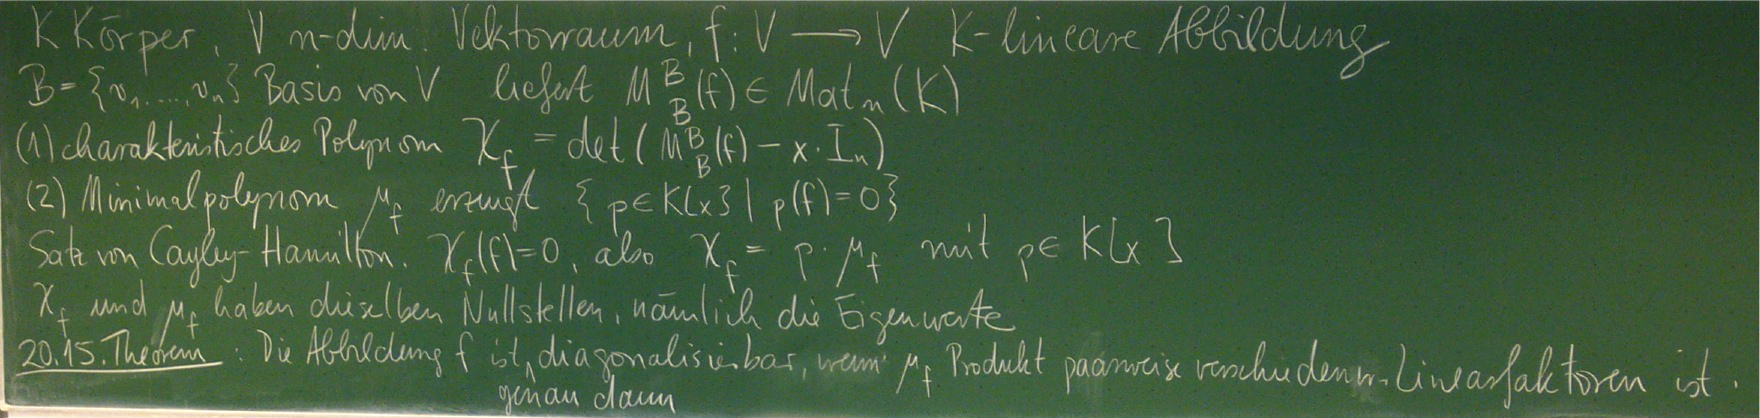 K Körper, V n-dim. Vektorraum, f: V ⟶ V K-lineare Abbildung
B = {v₁, ..., vₙ} Basis von V liefert M_B^B(f) ∈ Matₙ(K)
(1) charakteristisches Polynom χ_f = det(M_B^B(f) − x · Iₙ)
(2) Minimalpolynom μ_f erzeugt {p ∈ K[x] | p(f) = 0}
Satz von Cayley-Hamilton. χ_f(f) = 0, also χ_f = p · μ_f mit p ∈ K[x]
χ_f und μ_f haben dieselben Nullstellen, nämlich die Eigenwerte
20.15. Theorem: Die Abbildung f ist genau dann diagonalisierbar, wenn μ_f Produkt paarweise verschiedener Linearfaktoren ist.